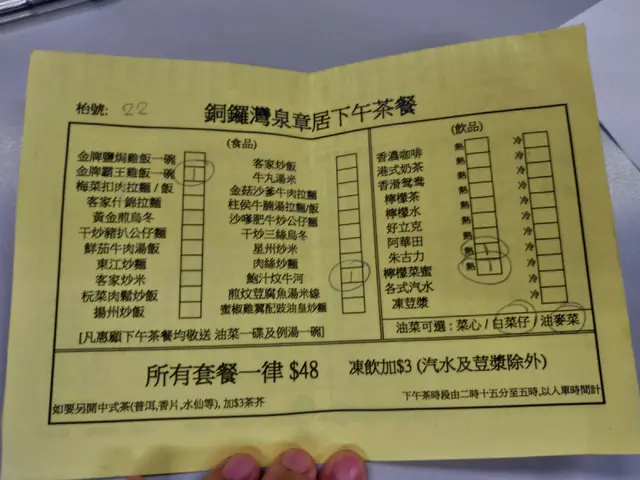 枱號: 22
銅鑼灣泉章居下午茶餐
(食品)
金牌鹽焗雞飯一碗
金牌霸王雞飯一碗 1
梅菜扣肉拉麵 / 飯
客家什錦拉麵
黃金煎烏冬
干炒豬扒公仔麵
鮮茄牛肉湯飯
東江炒麵
客家炒米
杬菜肉鬆炒飯
揚州炒飯
客家炒飯
牛丸湯米
金菇沙爹牛肉拉麵
柱侯牛腩湯拉麵/飯
沙嗲肥牛炒公仔麵
干炒三絲烏冬
星州炒米
肉絲炒麵
鮑汁炆牛河 1
煎炆荳腐魚湯米線
蜜椒雞翼配豉油皇炒麵
[凡惠顧下午茶餐均敬送 油菜一碟及例湯一碗]
(飲品)
香濃咖啡 熱 冷
港式奶茶 熱 冷
香滑鴛鴦 熱 冷
檸檬茶 熱 冷
檸檬水 熱 冷
好立克 熱 冷
阿華田 熱 冷
朱古力 熱 1 冷
檸檬菜蜜 熱 1 冷
各式汽水 冷
凍荳漿 冷
油菜可選 : 菜心 / 白菜仔 / 油麥菜
所有套餐一律 $48 凍飲加$3 (汽水及荳漿除外)
如要另開中式茶(普洱,香片,水仙等), 加$3茶芥
下午茶時段由二時十五分至五時,以入單時間計